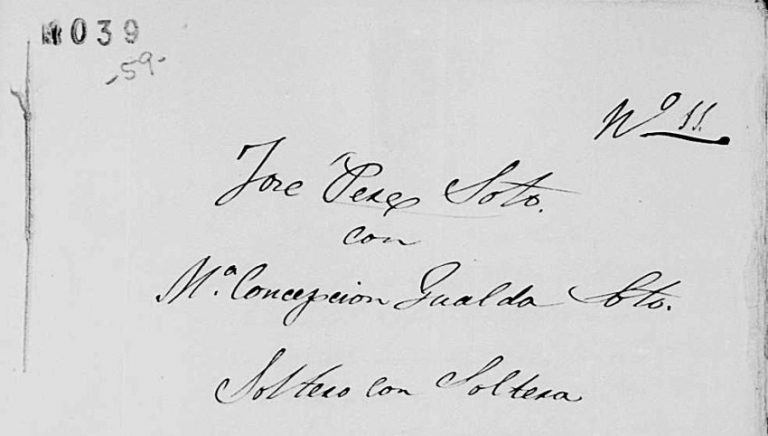 039
-59-
Nº 11.
José Perez Soto.
con
Mª. Concepcion Gualda Soto.
Soltero con Soltera